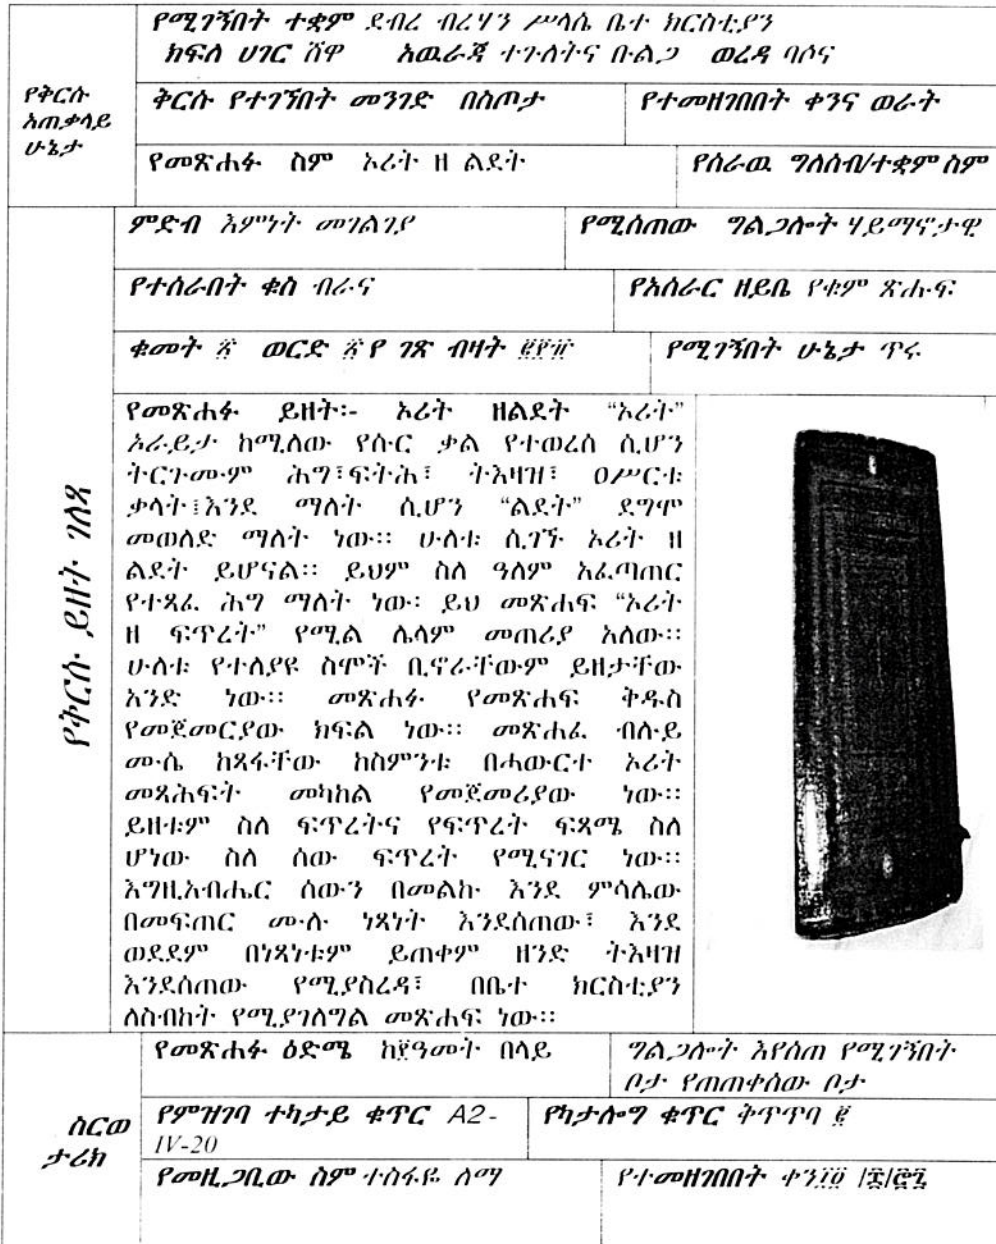 የሚገኝበት ተቋም ደብረ ብረሃን ሥላሴ ቤተ ክርስቲያን
ክፍለ ሀገር ሸዋ አዉራጃ ተጉለትና ቡልጋ ወረዳ ባሶና
የቅርሱ
አጠቃላይ
ሁኔታ
ቅርሱ የተገኘበት መንገድ በስጦታ
የተመዘገበበት ቀንና ወራት
የመጽሐፉ ስም ኦሪት ዘ ልደት
የሰራዉ ግለሰብ/ተቋም ስም
የቅርሱ ይዘት ገለጻ
ምድብ እምነት መገልገያ
የሚሰጠው ግልጋሎት ሃይማኖታዊ
የተሰራበት ቁስ ብራና
የአሰራር ዘይቤ የቁም ጽሑፍ
ቁመት ፳ ወርድ ፳ የ ገጽ ብዛት
የሚገኝበት ሁኔታ ጥሩ
የመጽሐፉ ይዘት፡- ኦሪት ዘልደት “ኦሪት”
ኦራይታ ከሚለው የሱር ቃል የተወረሰ ሲሆን
ትርጉሙም ሕግ፣ፍትሕ፣ ትእዛዝ፣ ዐሥርቱ
ቃላት፤እንደ ማለት ሲሆን “ልደት” ደግሞ
መወለድ ማለት ነው፡፡ ሁለቱ ሲገኙ ኦሪት ዘ
ልደት ይሆናል፡፡ ይህም ስለ ዓለም አፈጣጠር
የተጻፈ ሕግ ማለት ነው፡ ይህ መጽሐፍ “ኦሪት
ዘ ፍጥረት” የሚል ሌላም መጠሪያ አለው፡፡
ሁለቱ የተለያዩ ስሞች ቢኖራቸውም ይዘታቸው
አንድ ነው፡፡ መጽሐፉ የመጽሐፍ ቅዱስ
የመጀመርያው ክፍል ነው፡፡ መጽሐፈ ብሉይ
ሙሴ ከጻፋቸው ከስምንቱ በሓውርተ ኦሪት
መጻሕፍት መካከል የመጀመሪያው ነው፡፡
ይዘቱም ስለ ፍጥረትና የፍጥረት ፍጻሜ ስለ
ሆነው ስለ ሰው ፍጥረት የሚናገር ነው፡፡
እግዚአብሔር ሰውን በመልኩ እንደ ምሳሌው
በመፍጠር ሙሉ ነጻነት እንደሰጠው፣ እንደ
ወደደም በነጻነቱም ይጠቀም ዘንድ ትእዛዝ
እንደሰጠው የሚያስረዳ፣ በቤተ ክርስቲያን
ለስብከት የሚያገለግል መጽሐፍ ነው፡፡
ስርወ
ታሪክ
የመጽሐፉ ዕድሜ ከ፻ዓመት በላይ
ግልጋሎት እየሰጠ የሚገኝበት
ቦታ የጠጠቀሰው ቦታ
የምዝገባ ተካታይ ቁጥር A2-
IV-20
የካታሎግ ቁጥር ቅጥጥባ ፩
የመዚጋቢው ስም ተስፋዬ ለማ
የተመዘገበበት ቀን